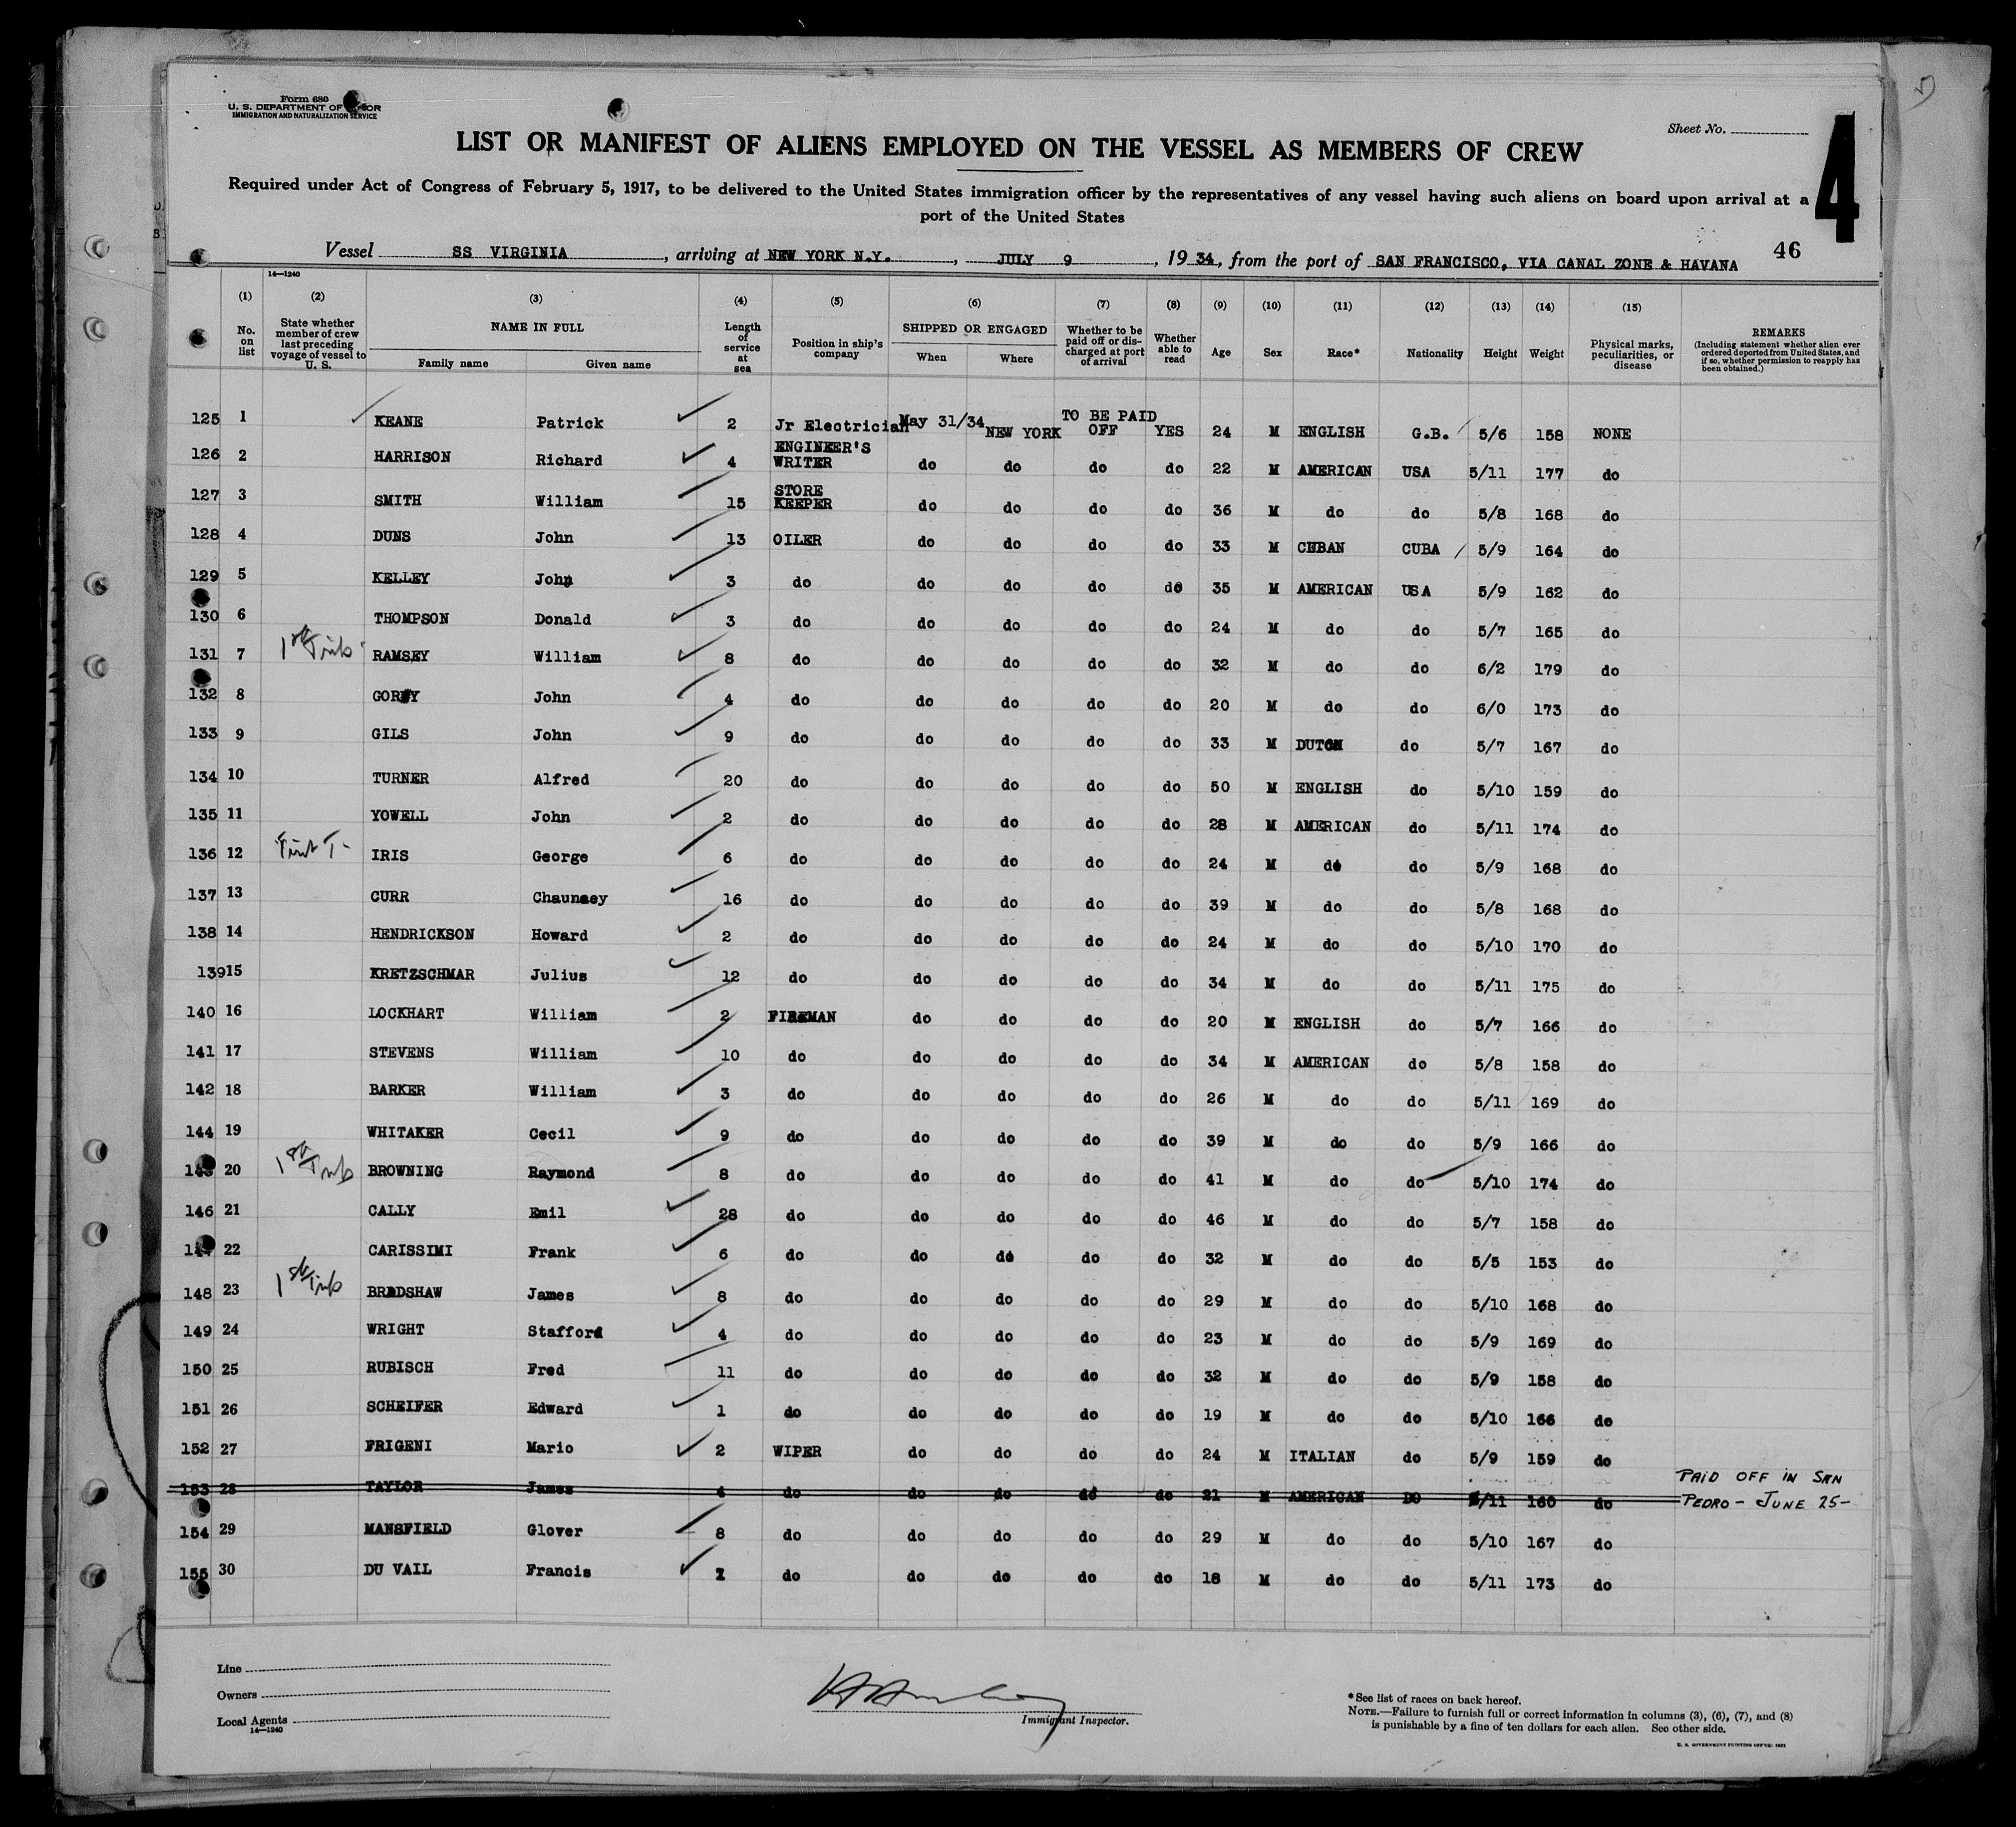 Form 680
U. S. DEPARTMENT OF
IMMIGRATION AND NATURALIZATION SERVICE
Sheet No.
4
LIST OR MANIFEST OF ALIENS EMPLOYED ON THE VESSEL AS MEMBERS OF CREW
Required under Act of Congress of February 5, 1917, to be delivered to the United States immigration officer by the representatives of any vessel having such aliens on board upon arrival at a
port of the United States
46
Vessel SS VIRGINIA, arriving at NEW YORK N.Y., JULY 9, 1934, from the port of SAN FRANCISCO, VIA CANAL ZONE & HAVANA
14—1240
(1) (2) (3) (4) (5) (6) (7) (8) (9) (10) (11) (12) (13) (14) (15)
No. on list State whether member of crew last preceding voyage of vessel to U. S. NAME IN FULL Family name Given name Length of service at sea Position in ship's company SHIPPED OR ENGAGED When Where Whether to be paid off or discharged at port of arrival Whether able to read Age Sex Race* Nationality Height Weight Physical marks, peculiarities, or disease REMARKS (Including statement whether alien ever ordered deported from United States, and if so, whether permission to reapply has been obtained.)
125 1 KEANE Patrick 2 Jr Electrician May 31/34 NEW YORK TO BE PAID OFF YES 24 M ENGLISH G.B. 5/6 158 NONE
126 2 HARRISON Richard 4 ENGINEER'S WRITER do do do do 22 M AMERICAN USA 5/11 177 do
127 3 SMITH William 15 STORE KEEPER do do do do 36 M do do 5/8 168 do
128 4 DUNS John 13 OILER do do do do 33 M CUBAN CUBA 5/9 164 do
129 5 KELLEY John 3 do do do do do 35 M AMERICAN USA 5/9 162 do
130 6 THOMPSON Donald 3 do do do do do 24 M do do 5/7 165 do
131 7 1st Trip RAMSEY William 8 do do do do do 32 M do do 6/2 179 do
132 8 John 4 do do do do do 20 M do do 6/0 173 do
133 9 GILS John 9 do do do do do 33 M DUTCH do 5/7 167 do
134 10 TURNER Alfred 20 do do do do do 50 M ENGLISH do 5/10 159 do
135 11 YOWELL John 2 do do do do do 28 M AMERICAN do 5/11 174 do
136 12 First T- IRIS George 6 do do do do do 24 M do do 5/9 168 do
137 13 CURR Chauncey 16 do do do do do 39 M do do 5/8 168 do
138 14 HENDRICKSON Howard 2 do do do do do 24 M do do 5/10 170 do
139 15 KRETZSCHMAR Julius 12 do do do do do 34 M do do 5/11 175 do
140 16 LOCKHART William 2 FIREMAN do do do do 20 M ENGLISH do 5/7 166 do
141 17 STEVENS William 10 do do do do do 34 M AMERICAN do 5/8 158 do
142 18 BARKER William 3 do do do do do 26 M do do 5/11 169 do
144 19 WHITAKER Cecil 9 do do do do do 39 M do do 5/9 166 do
20 1st Trip BROWNING Raymond 8 do do do do do 41 M do do 5/10 174 do
146 21 CALLY Emil 28 do do do do do 46 M do do 5/7 158 do
22 CARISSIMI Frank 6 do do do do do 32 M do do 5/5 153 do
148 23 1st Trip BRADSHAW James 8 do do do do do 29 M do do 5/10 168 do
149 24 WRIGHT Stafford 4 do do do do do 23 M do do 5/9 169 do
150 25 RUBISCH Fred 11 do do do do do 32 M do do 5/9 158 do
151 26 SCHEIFER Edward 1 do do do do do 19 M do do 5/10 166 do
152 27 FRIGENI Mario 2 WIPER do do do do 24 M ITALIAN do 5/9 159 do
153 28 TAYLOR James 4 do do do do do 21 M AMERICAN DO 5/11 160 do PAID OFF IN SAN PEDRO - JUNE 25-
154 29 MANSFIELD Glover 8 do do do do do 29 M do do 5/10 167 do
155 30 DU VAIL Francis do do do do do 18 M do do 5/11 173 do
Line
Owners
Local Agents
14—1240
Immigrant Inspector.
*See list of races on back hereof.
NOTE.—Failure to furnish full or correct information in columns (3), (6), (7), and (8)
is punishable by a fine of ten dollars for each alien. See other side.